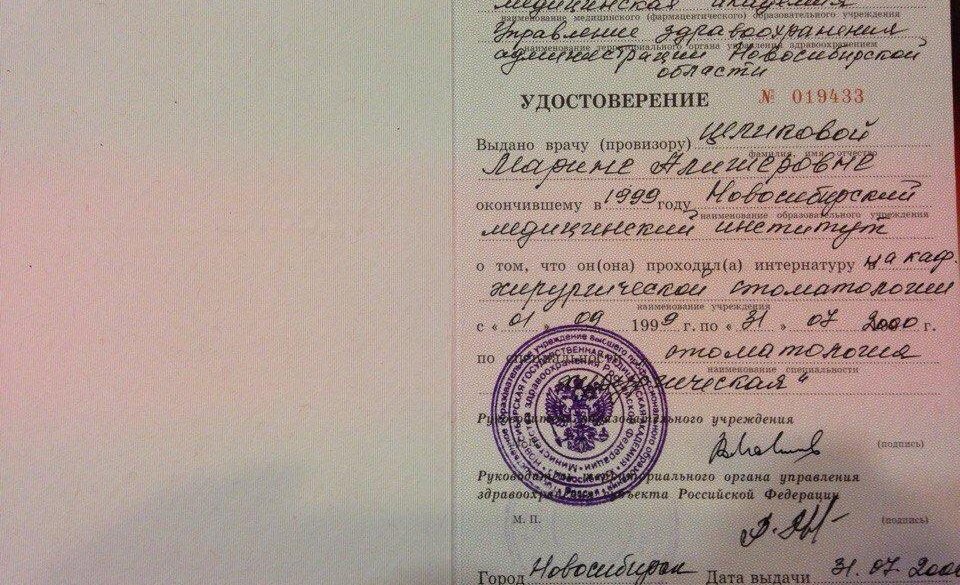 медицинская академия
наименование медицинского (фармацевтического) образовательного учреждения
Управление здравоохранения
наименование территориального органа управления здравоохранением
администрации Новосибирской
области
УДОСТОВЕРЕНИЕ № 019433
Выдано врачу (провизору) Целиковой
фамилия, имя, отчество
Марине Алишеровне
окончившему в 1999 году Новосибирский
наименование образовательного учреждения
медицинский институт
о том, что он(она) проходил(а) интернатуру в на каф.
хирургической стоматологии
наименование учреждения
с « 01 » 09 1999 г. по « 31 » 07 2000 г.
по специальности стоматология
наименование специальности
хирургическая"
Руководитель образовательного учреждения
(подпись)
Руководитель территориального органа управления
здравоохранением субъекта Российской Федерации
М. П. (подпись)
Город Новосибирск Дата выдачи 31. 07 2000